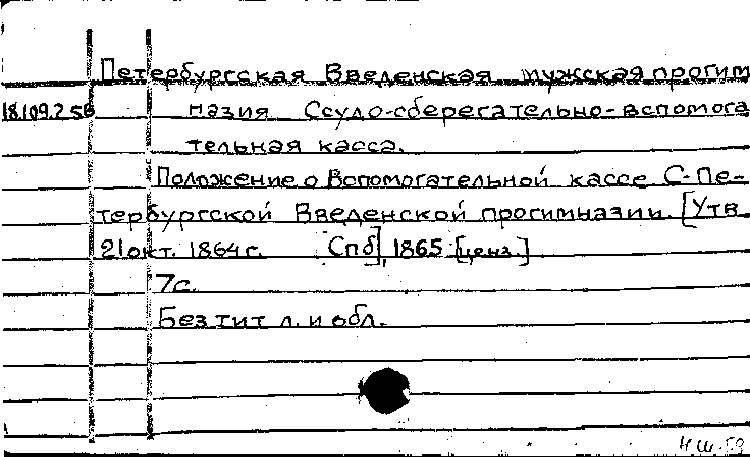 Петербургская Введенская мужская прогим
18.109.2.56 назия Ссудо-сберегательно-вспомога
тельная касса.
Положение о Вспомогательной кассе С-Пе-
тербургской Введенской прогимназии. [Утв.
21 окт. 1864 г. Спб], 1865 [ценз.]
7с.
Без тит л. и обл.